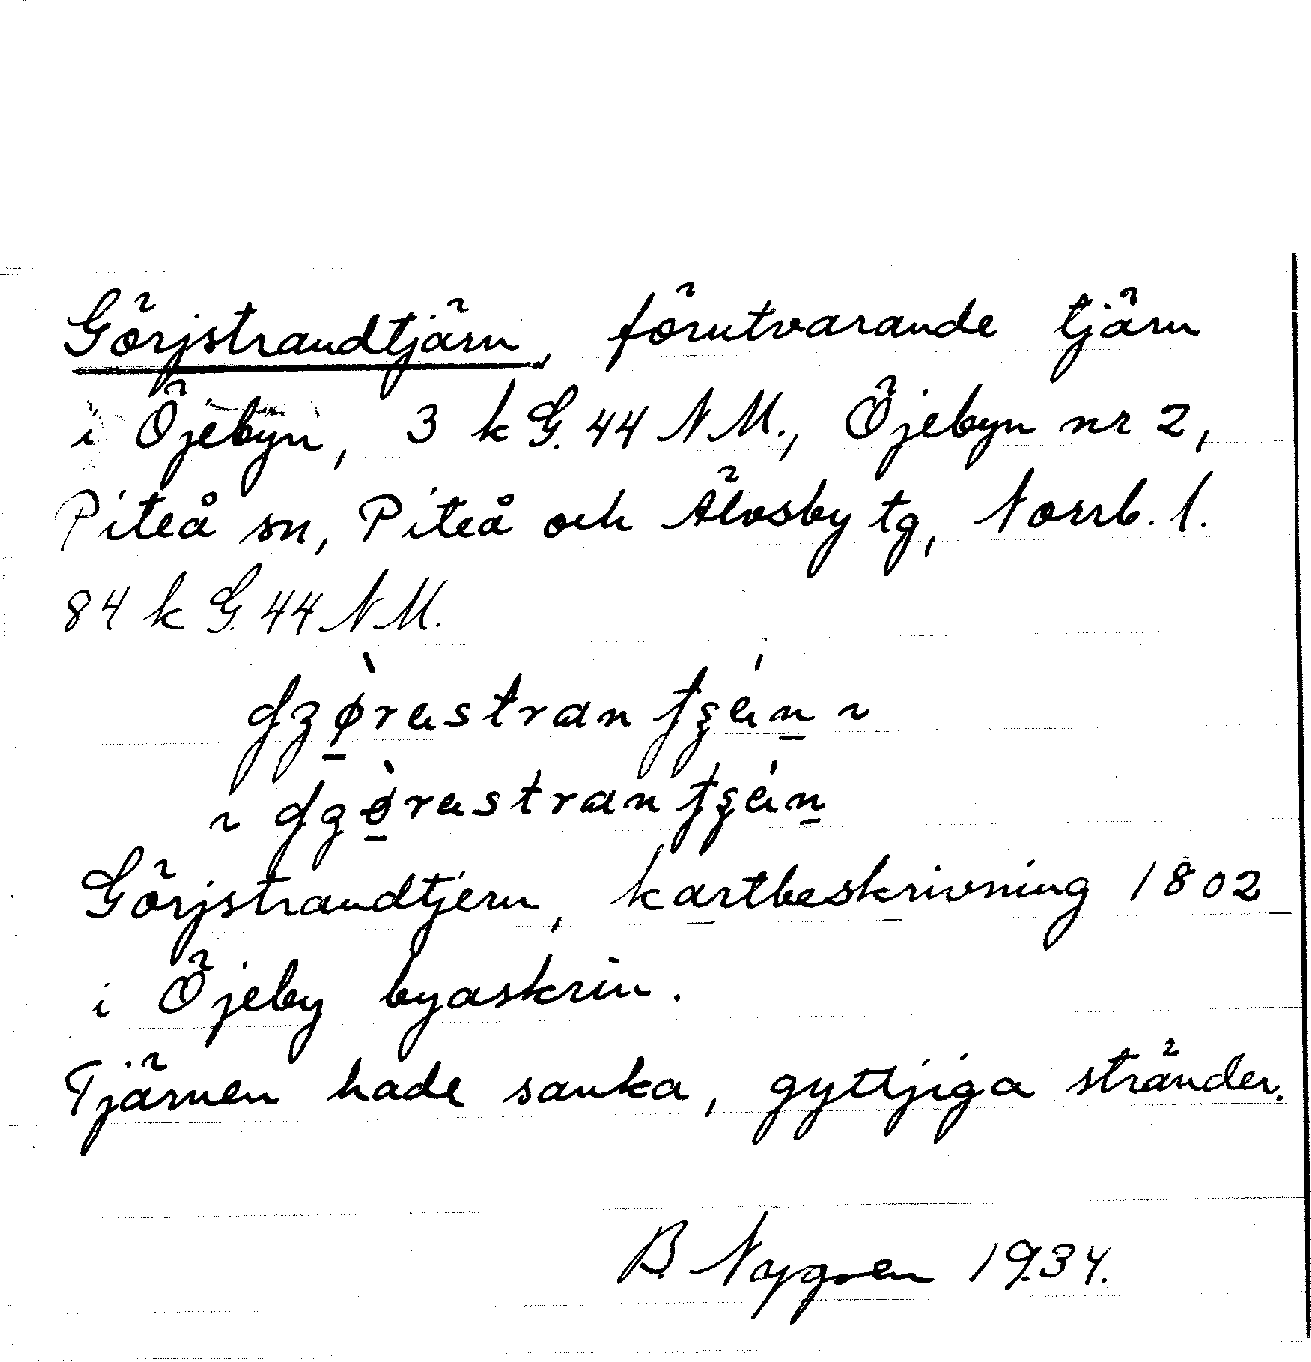 Görjstrandtjärn, förutvarande tjärn
i Öjebyn, 3 k G. 44 N M., Öjebyn nr 2,
Piteå sn, Piteå och Älvsby tg, Norrb. l.
84 k G. 44 N M.
Görjstrandtjern, kartbeskrivning 1802
i Öjeby byaskrin.
Tjärnen hade sanka, gyttjiga stränder.
B. Nygren 1934.